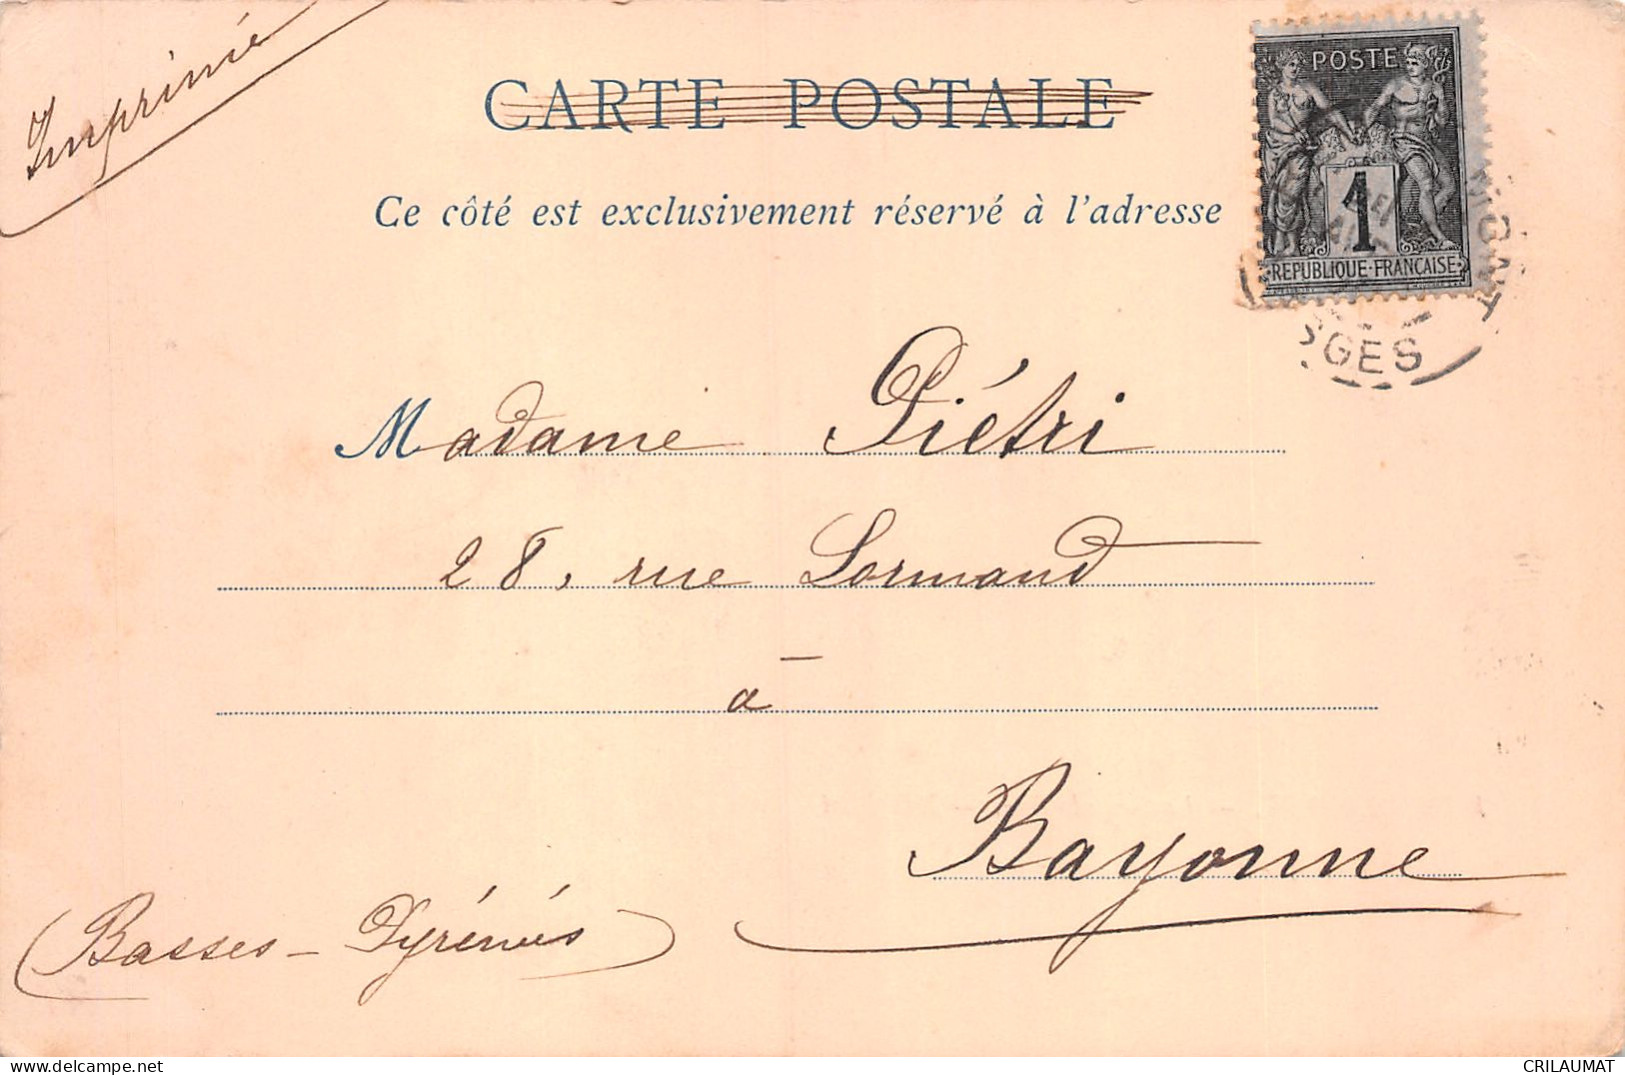 Imprimé
CARTE POSTALE
Ce côté est exclusivement réservé à l'adresse
POSTE
1
REPUBLIQUE FRANCAISE
Madame Piétri
28, rue Lormand
à
Bayonne
(Basses-Pyrénées)
CRILAUMAT